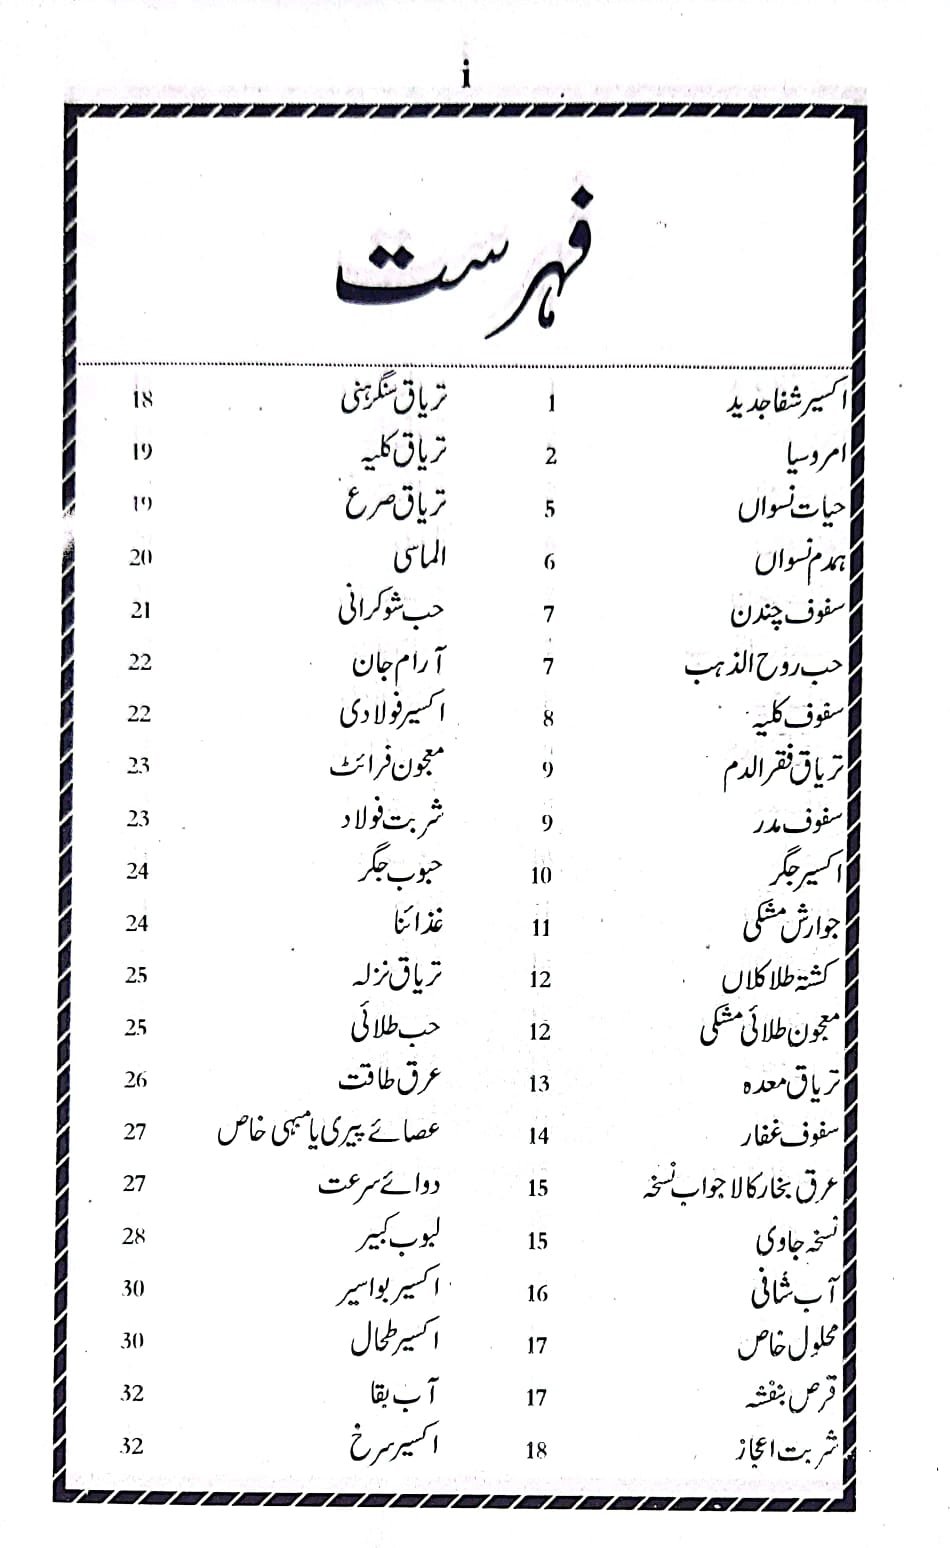 i
فہرست
اکسیر شفا جدید 1
امروسیا 2
حیات نسواں 5
ہمدم نسواں 6
سفوف چندن 7
حب روح الذہب 7
سفوف کلیہ 8
تریاق فقر الدم 9
سفوف مدر 9
اکسیر جگر 10
جوارش مشکی 11
کشتہ طلا کلاں 12
معجون طلائی مشکی 12
تریاق معدہ 13
سفوف غفار 14
عرق بخار کا لاجواب نسخہ 15
نسخہ جاوی 15
آب شافی 16
محلول خاص 17
قرص بنفشہ 17
شربت اعجاز 18
تریاق سنگرہنی 18
تریاق کلیہ 19
تریاق صرع 19
الماسی 20
حب شوکرانی 21
آرام جان 22
اکسیر فولادی 22
معجون فرائٹ 23
شربت فولاد 23
حبوب جگر 24
غذائنا 24
تریاق نزلہ 25
حب طلائی 25
عرق طاقت 26
عصائے پیری یا مبہی خاص 27
دوائے سرعت 27
لبوب کبیر 28
اکسیر بواسیر 30
اکسیر طحال 30
آب بقا 32
اکسیر سرخ 32